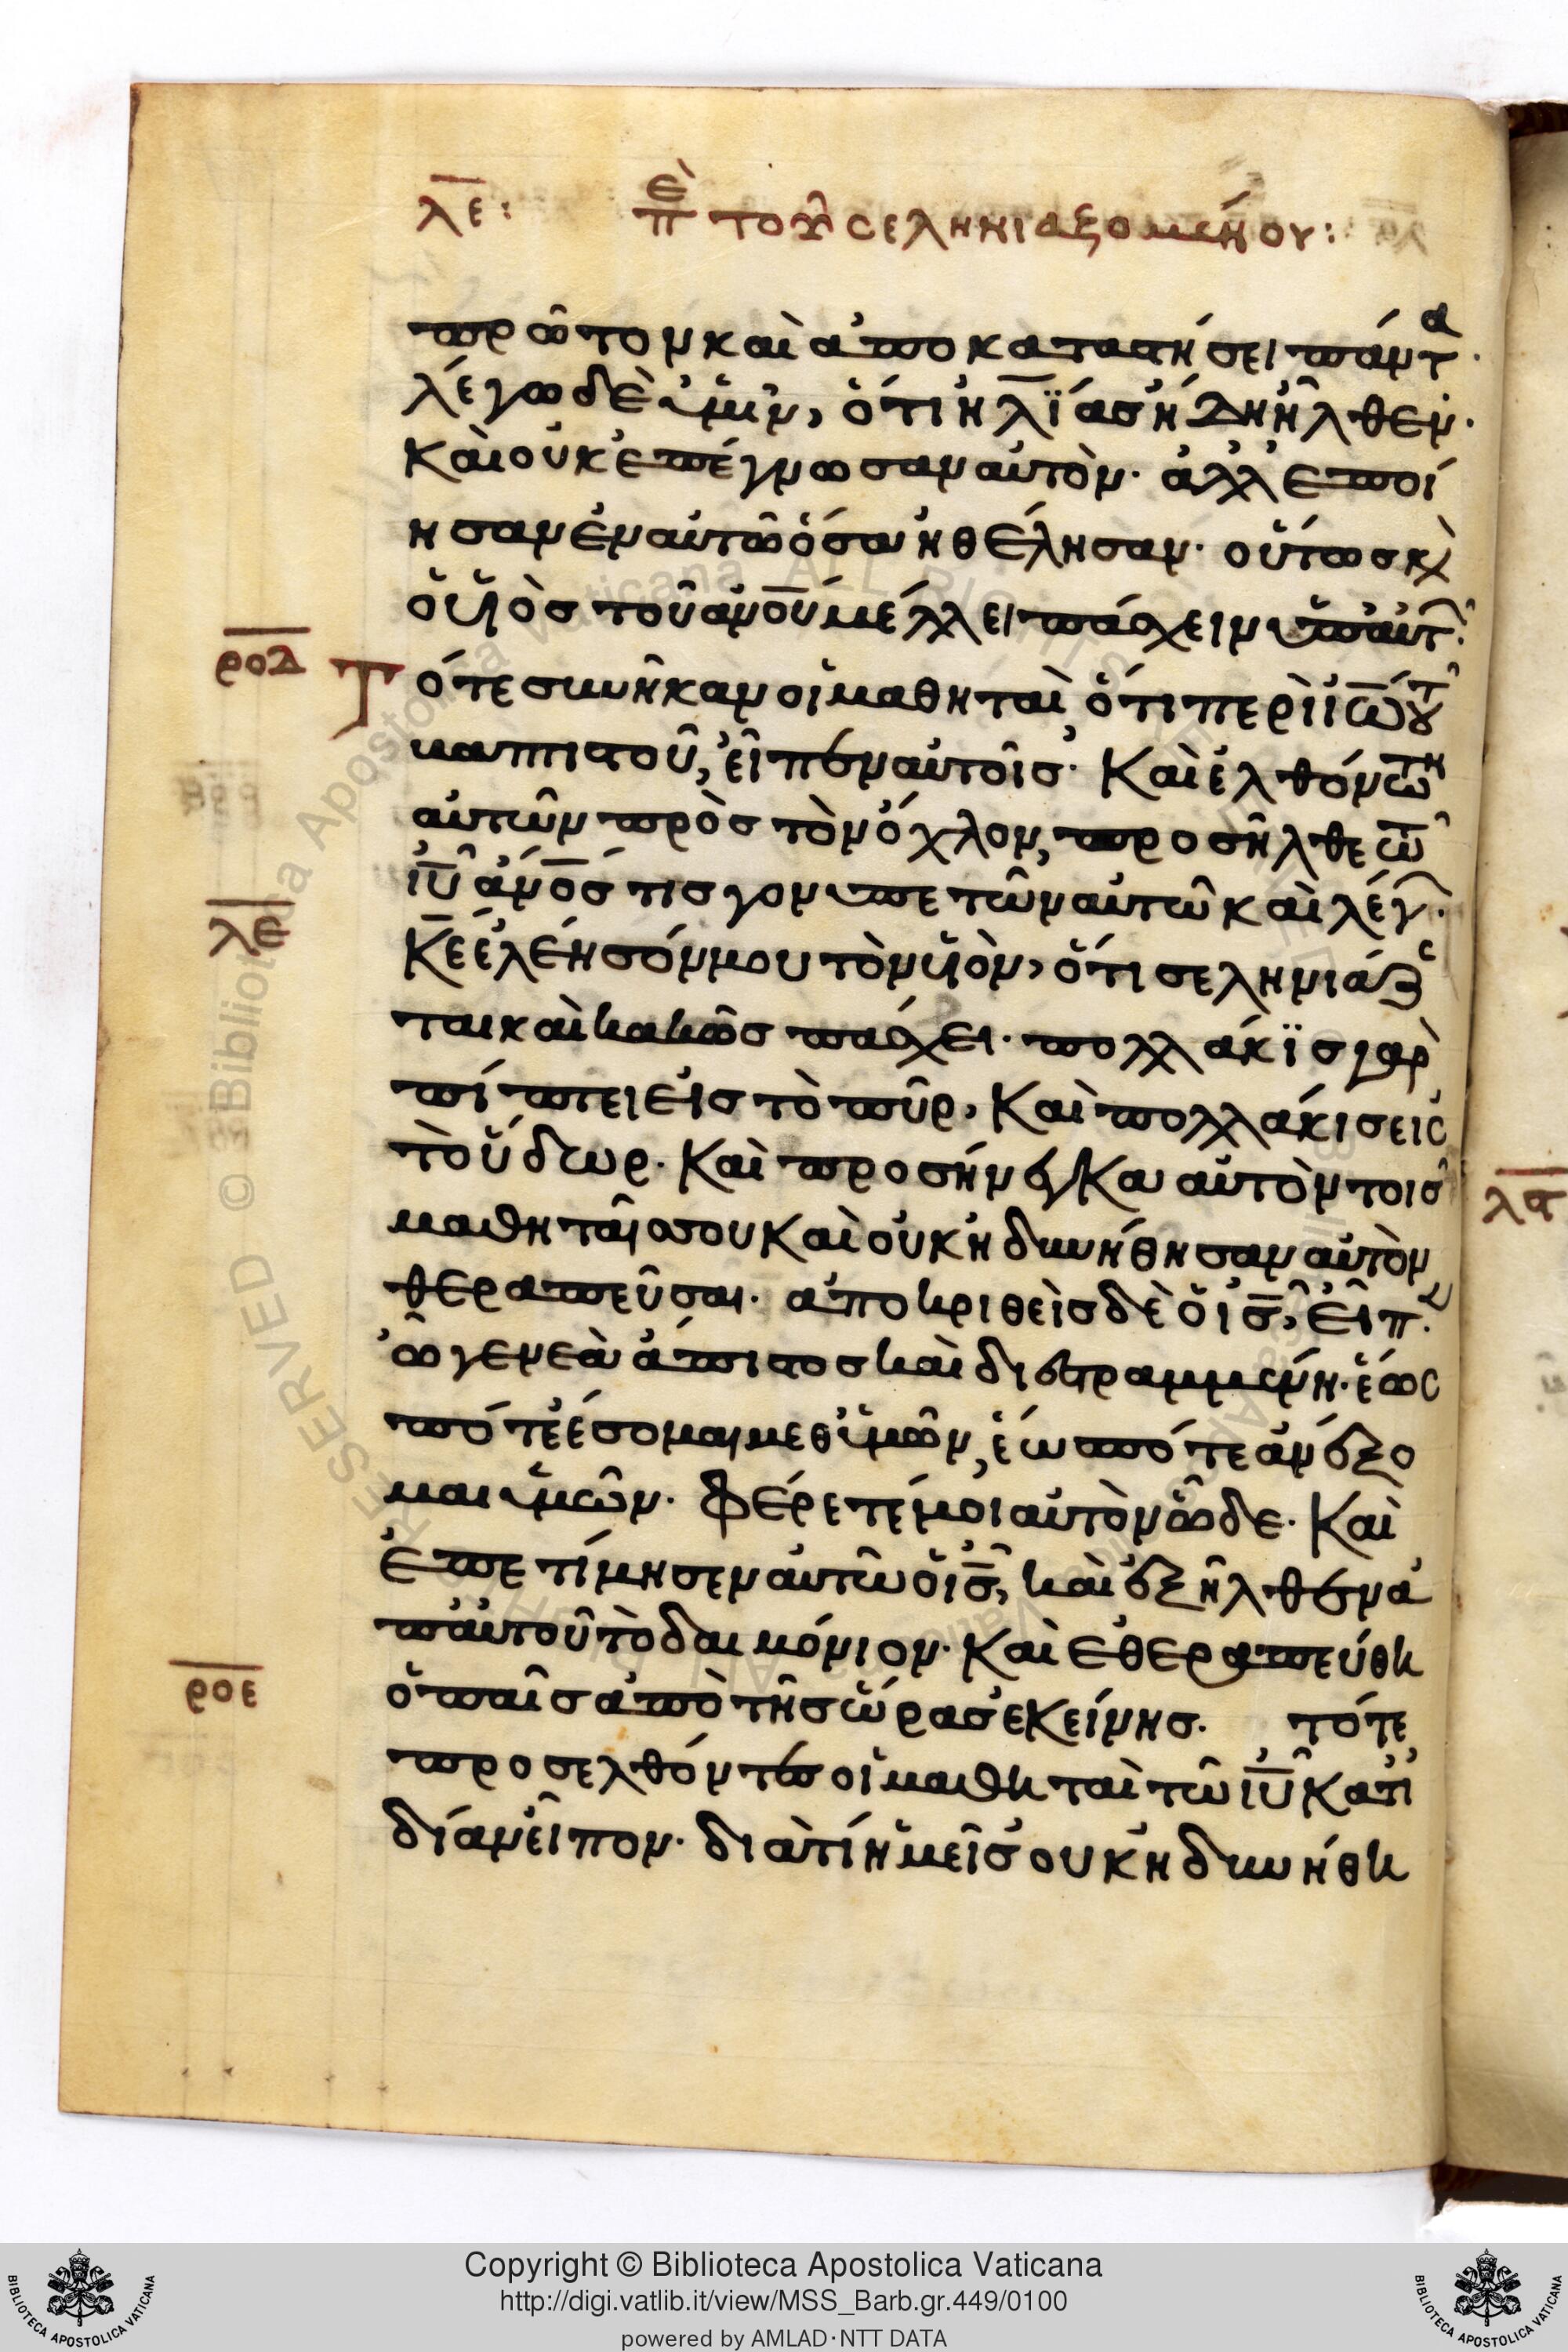 λε: πε τοῦ σεληνιαζομένου:
πρῶτον καὶ ἀποκαταστήσει πάντα.
λέγω δὲ ὑμῖν, ὅτι ἠλϊας ἤδη ἦλθεν.
καὶ οὐκ ἐπέγνωσαν αὐτὸν. ἀλλ' ἐποί
ησαν ἐν αὐτῶ ὅσα ἠθέλησαν. οὕτως κὶ
ὁ υἱὸς τοῦ ανου μέλλει πάσχειν ὑπ' αὐτ.
ροδ Τότε συνῆκαν οἱ μαθηταὶ, ὅτι περὶ ιω του
βαπτιστοῦ, εἶπεν αὐτοῖς. Καὶ ἐλθόντων
αὐτῶν πρὸς τὸν ὄχλον, προσῆλθε τῶ
λε ιυ ανος τις γονυπετῶν αὐτῶ καὶ λέγ.
Κε ἐλέησόν μου τὸν υἱὸν, ὅτι σεληνιάζε
ται καὶ κακῶς πάσχει. πολλάκϊς γὰρ
πίπτει εἰς τὸ πῦρ, Καὶ πολλάκις εἰς
τὸ ὕδωρ. Καὶ προσήνεγκα αὐτὸν τοῖς
λϛ
μαθηταῖς σου Καὶ οὐκ ἠδυνήθησαν αὐτὸν
θεραπεῦσαι. ἀποκριθεὶς δὲ ὁ ις, εἶπ.
ὦ γενεὰ ἄπιστος καὶ διεστραμμένη. ἕως
πότε ἔσομαι μεθ' ὑμῶν, ἕως πότε ἀνέξο
μαι ὑμῶν. Φέρετέ μοι αὐτὸν ὧδε. Καὶ
ἐπετίμησεν αὐτῶ ὁ ις, καὶ ἐξῆλθεν ἀ
π' αὐτοῦ τὸ δαιμόνιον. Καὶ ἐθεραπεύθη
ροε ὁ παῖς ἀπὸ τῆς ὥρας ἐκείνης. τότε
προσελθόντες οἱ μαθηταὶ τῶ ιυ Κατ'ἰ
δίαν εἶπον. διατί ἡμεῖς οὐκ ἠδυνήθη
Copyright © Biblioteca Apostolica Vaticana
http://digi.vatlib.it/view/MSS_Barb.gr.449/0100
powered by AMLAD·NTT DATA
BIBLIOTECA APOSTOLICA VATICANA
BIBLIOTECA APOSTOLICA VATICANA